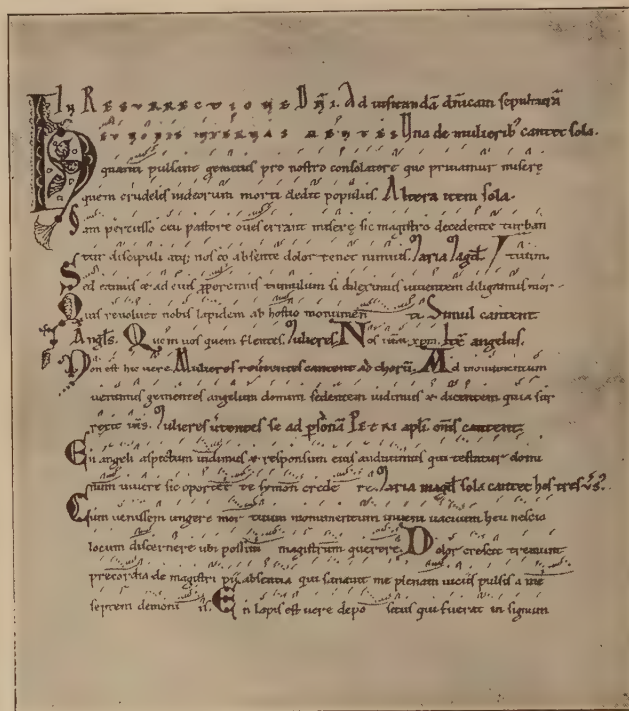 In RESVRRECTIONE DNI. Ad uisitandā dnicam sepulturā
Una de mulierib; cantet sola.
quanti pulsant gemitus pro nostro consolatore quo priuamur miserę
quem crudelis iudeorum morti dedit populus. Altera item sola.
Iam percusso ceu pastore oues errant miserę sic magistro decedente turban
tur discipuli atq; nos eo absente dolor tenet nimius. Maria Magd. tuum.
Sed eamus & ad eius properemus tumulum si dileximus uiuentem diligamus mor-
Quis reuoluet nobis lapidem ab hostio monumen ti. Simul cantent
Angls. Quem uos quem flentes. Mulieres. Nos ihm xpm. Itē angelus.
Non est hic vere. Mulieres cantent ad chorū. Ad monumentum
uenimus gementes angelum domini sedentem uidimus & dicentem quia sur
rexit ihs. Mulieres uertentes se ad psonā PETRI apli. oms cantent
En angeli aspectum uidimus & responsum eius audiuimus qui testatur domi
num uiuere sic oportet te symon crede re. Maria magd sola cantet hos tres v̄s.
Cum uenissem ungere mor tuum monumentum inueni uacuum heu nescio
locum discernere ubi possim magistrum querere. Dolor crescit tremunt
precordia de magistri pii absentia qui sanauit me plenam uiciis pulsis a me
septem demoni is. En lapis est uere depo situs qui fuerat in signum